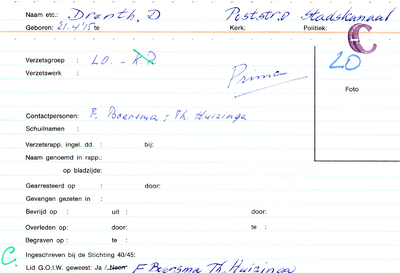 Naam etc.: Drenth, D Poststr. 0 Stadskanaal
Geboren: 21.4.15 te Kerk: Politiek:
C
Verzetsgroep : LO. - KP LO
Verzetswerk : Prima
Foto
Contactpersonen: F. Boersma; Th. Huizinga
Schuilnamen :
Verzetsrapp. ingel. dd. : bij:
Naam genoemd in rapp.:
op bladzijde:
Gearresteerd op : door:
Gevangen gezeten in :
Bevrijd op : uit : door:
Overleden op: door: te :
Begraven op : te :
C. Ingeschreven bij de Stichting 40/45:
Lid G.O.I.W. geweest: Ja / Neen F Boersma Th. Huizinga